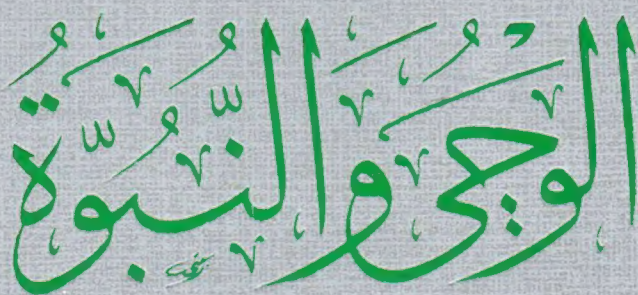 الوحي والنُّبُوَّةُ